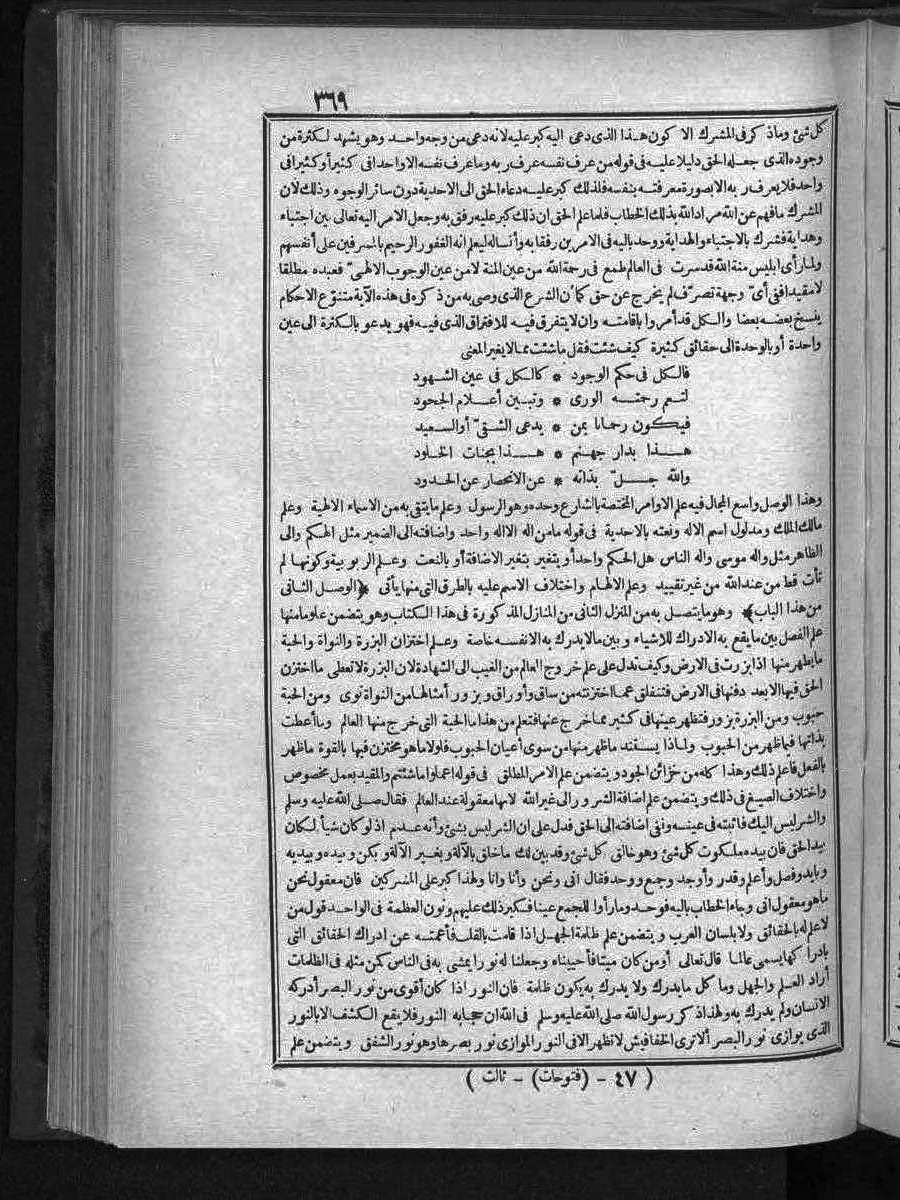 ٣٦٩
كل شئ وماذكر فى المشرك الا كون هذا الذى دعى اليه كبر عليه لانه دعى من وجه واحد وهو يشهد لكثرة من
وجوده الذى جعله الحق دليلا عليه فى قوله من عرف نفسه عرف ربه وما عرف نفسه الا واحدا فى كثير أو كثيرا فى
واحد فلا يعرف ربه الا بصورة معرفته بنفسه فلذلك كبر عليه دعاء الحق الى الاحدية دون سائر الوجوه وذلك لان
المشرك ما فهم عن الله مراد الله بذلك الخطاب فلما علم الحق ان ذلك كبر عليه رفق به وجعل الامر اليه تعالى بين اجتباء
وهداية فشرك بالاجتباء والهداية ووحد باليه فى الامرين رفقا به وأنسا له ليعلم انه الغفور الرحيم بالمسرفين على أنفسهم
ولما رأى ابليس منة الله قد سرت فى العالم طمع فى رحمة الله من عين المنة لا من عين الوجوب الالهى فعبده مطلقا
لا مقيدا ففى أى وجهة تصرف لم يخرج عن حق كما أن الشرع الذى وصى به من ذكره فى هذه الآية متنوع الاحكام
ينسخ بعضه بعضا والكل قد أمروا باقامته وان لا يتفرق فيه للافتراق الذى فيه فهو يدعو بالكثرة الى عين
واحدة أو بالوحدة الى حقائق كثيرة كيف شئت فقل ما شئت مما لا يغير المعنى
فالكل فى حكم الوجود * كالكل فى عين الشهود
لتعم رحمته الورى * وتبين أعلام الجحود
فيكون رحمانا بمن * يدعى الشقى أو السعيد
هذا بدار جهنم * هذا بجنات الخلود
والله جل بذاته * عن الانحصار عن الحدود
وهذا الوصل واسع المجال فيه علم الاوامر المختصة بالشارع وحده وهو الرسول وعلم ما يتقى به من الاسماء الالهية وعلم
مالك الملك ومدلول اسم الاله ونعته بالاحدية فى قوله ما من اله الا اله واحد واضافته الى الضمير مثل الهكم والى
الظاهر مثل واله موسى واله الناس هل الحكم واحد أو يتغير بتغير الاضافة أو بالنعت وعلم الربوبية وكونها لم
تأت قط من عند الله من غير تقييد وعلم الالهام واختلاف الاسم عليه بالطرق التى منها يأتى ﴿الوصل الثانى
من هذا الباب﴾ وهو ما يتصل به من المنزل الثانى من المنازل المذكورة فى هذا الكتاب وهو يتضمن علوما منها
علم الفصل بين ما يقع به الادراك للاشياء وبين ما لا يدرك به الا نفسه خاصة وعلم اختزان البزرة والنواة والحبة
ما يظهر منها اذا بزرت فى الارض وكيف تدل على علم خروج العالم من الغيب الى الشهادة لان البزرة لا تعطى ما اختزن
الحق فيها الا بعد دفنها فى الارض فتنفلق عما اختزنته من ساق وأوراق وبزور أمثالها من النواة نوى ومن الحبة
حبوب ومن البزرة بزور فتظهر عينها فى كثير مما خرج عنها فتعلم من هذا ما الحبة التى خرج منها العالم وما أعطت
بذاتها فيما ظهر من الحبوب ولماذا يستند ما ظهر منها من سوى أعيان الحبوب فلولا ما هو مختزن فيها بالقوة ما ظهر
بالفعل فاعلم ذلك وهذا كله من خزائن الجود ويتضمن علم الامر المطلق فى قوله اعملوا ما شئتم والمقيد بعمل مخصوص
واختلاف الصيغ فى ذلك ويتضمن علم اضافة الشرور الى غير الله لانها معقولة عند العالم فقال صلى الله عليه وسلم
والشر ليس اليك فاثبته فى عينه ونفى اضافته الى الحق فدل على ان الشر ليس بشئ وأنه عدم اذ لو كان شيأ لكان
بيد الحق فان بيده ملكوت كل شئ وهو خالق كل شئ وقد بين لك ما خلق بالآلة وبغير الآلة وبكن وبيده وبيديه
وبايد وفصل وأعلم وقدر وأوجد وجمع ووحد فقال انى ونحن وأنا وانا ولهذا كبر على المشركين فان معقول نحن
ما هو معقول انى وجاء الخطاب باليه فوحد وما رأوا للجمع عينا فكبر ذلك عليهم ونون العظمة فى الواحد قول من
لا علم له بالحقائق ولا بلسان العرب ويتضمن علم ظلمة الجهل اذا قامت بالقلب فأعمته عن ادراك الحقائق التى
بادراكها يسمى عالما قال تعالى أومن كان ميتا فأحييناه وجعلنا له نورا يمشى به فى الناس كمن مثله فى الظلمات
أراد العلم والجهل وما كل ما يدرك ولا يدرك به يكون ظلمة فان النور اذا كان أقوى من نور البصر أدركه
الانسان ولم يدرك به ولهذا ذكر رسول الله صلى الله عليه وسلم فى الله ان حجابه النور فلا يقع الكشف الا بالنور
الذى يوازى نور البصر ألا ترى الخفافيش لا تظهر الا فى النور الموازى نور بصرها وهو نور الشفق ويتضمن علم
( ٤٧ - (فتوحات) - ثالث )